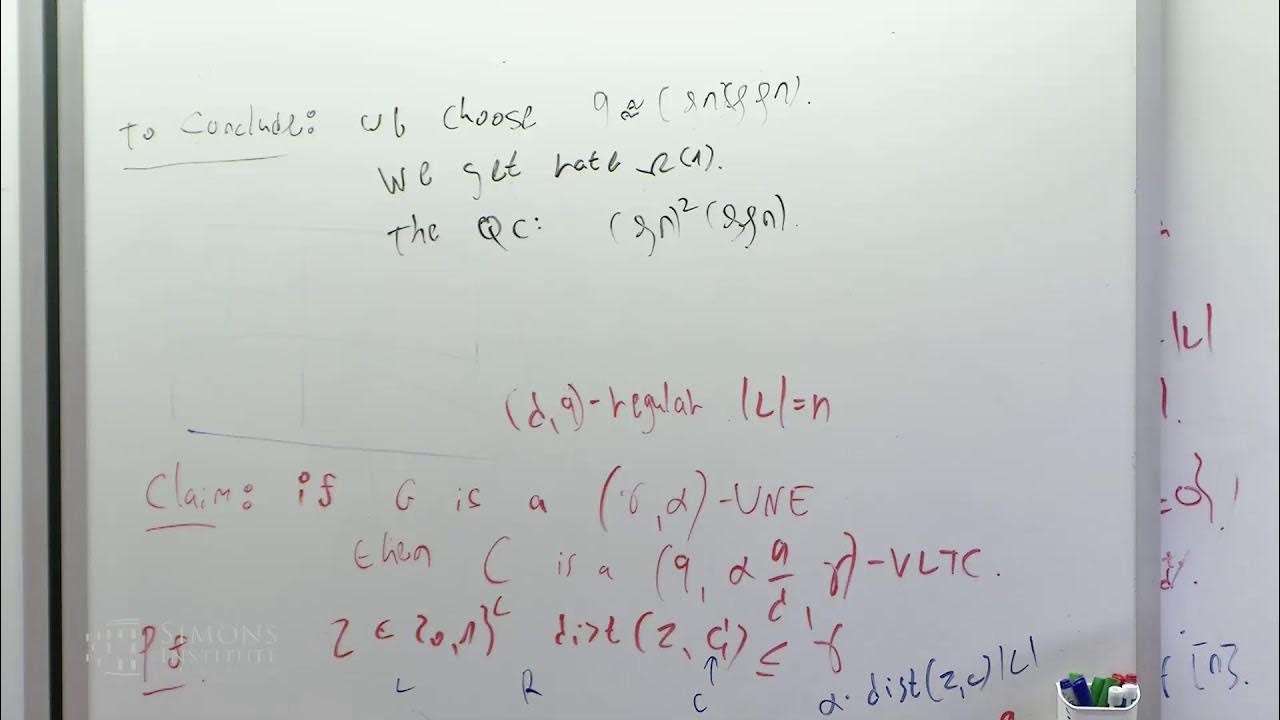 To Conclude: we choose q ≈ (lg n)(lglg n).
We get rate Ω(1).
The QC: (lg n)² (lglg n).
(d,q)-regular |L|=n
Claim: if G is a (γ,α)-UNE
then C is a (q, α q/d, γ)-VLTC.
Pf z ∈ {0,1}^L dist(z, C) ≤ γ
L R C α·dist(z,C)|L|
SIMONS
INSTITUTE
|L|
[n].